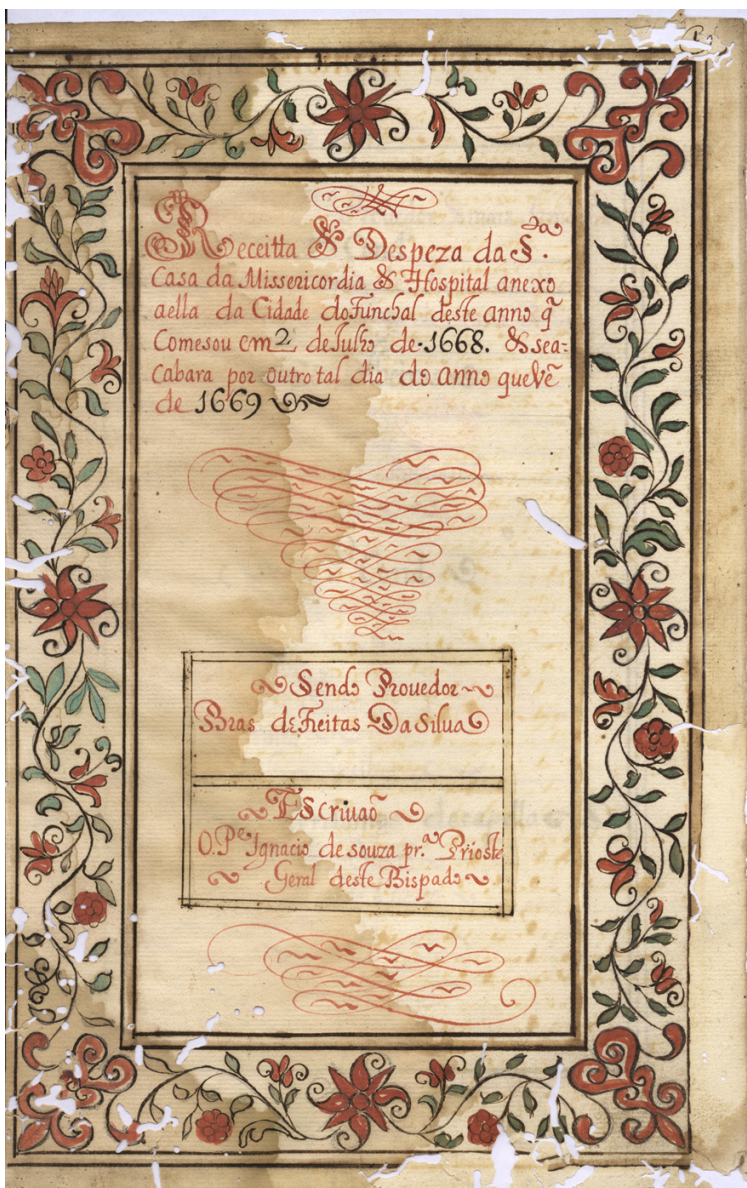 Receitta & Despeza da S.ᵗᵃ
Casa da Missericordia & Hospital anexo
aella da Cidade do Funchal deste anno q̃
Comesou em 2 de Julho de·1668. & sea=
cabara por outro tal dia do anno que Vẽ
de 1669
Sendo Prouedor
Bras de Freitas Da Silua
EScriuaõ
O.Pᵉ Ignacio de souza pr.ᵃ Prioste
Geral deste Bispado